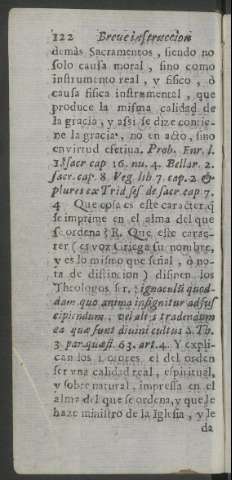 122 Breue instruccion
demàs Sacramentos, siendo no
solo causa moral, sino como
instrumento real, y fisico, ò
causa fisica instrumental, que
produce la misma calidad de
la gracia, y assi se dize contie-
ne la gracia, no en acto, sino
en virtud efetiua. Prob. Enr. l.
sacr cap 16. nu. 4. Bellar. 2.
sacr. cap. 8 Veg. lib 7. cap. 2 &
plures ex Trid ses de sacr cap 7.
4 Que cosa es este caracter q̃
se imprime en el alma del que
se ordena? R. Que este carac-
ter (es voz Griega su nombre,
y es lo mismo que señal, ò no-
ta de distincion) difinen los
Theologos
dam quo anima insignitur ad sus
cipiendum, vel alijs tradendum
ea quæ sunt diuini cultus D. Th.
3 par. quæst. 63. art. 4. Y expli-
can los Doctores, el del orden
ser vna calidad real, espiritual,
y sobrenatural, impressa en el
alma del que se ordena, y que le
haze ministro de la Iglesia, y le
da